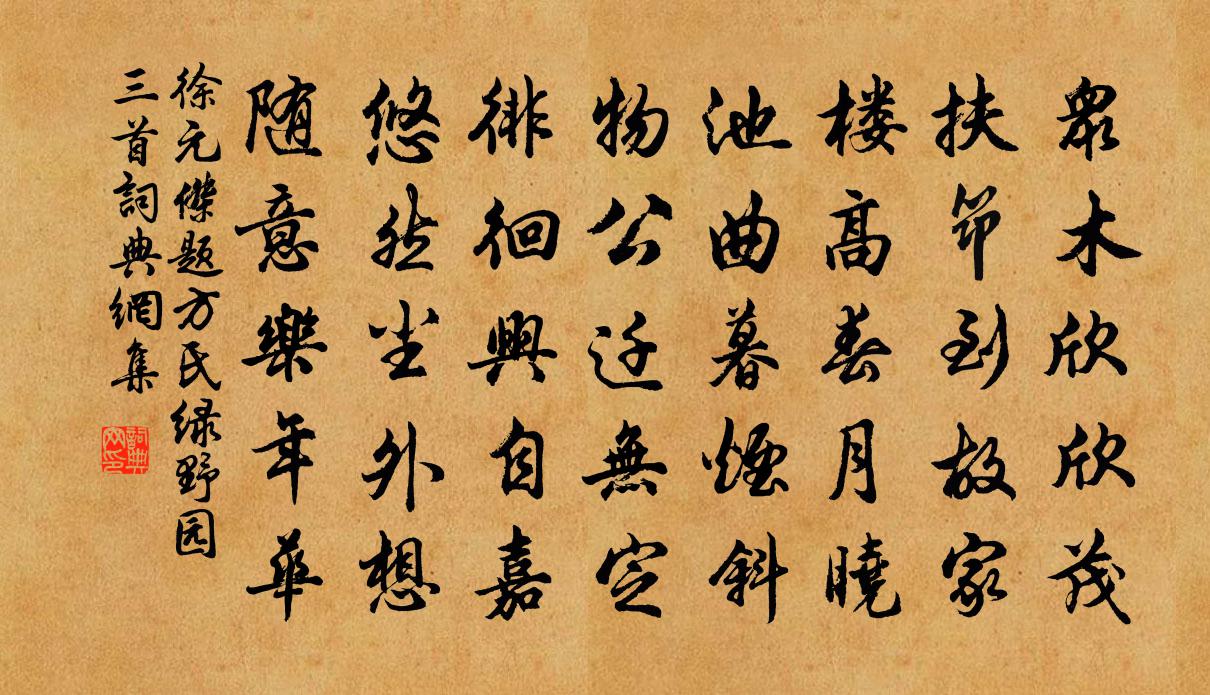 眾木欣欣茂
扶筇到故家
楼高春月曉
池曲暮煙斜
物公迁無定
徘徊興自嘉
悠然尘外想
随意樂年華
徐元傑题方氏绿野园
三首詞典網集
詞典
网印